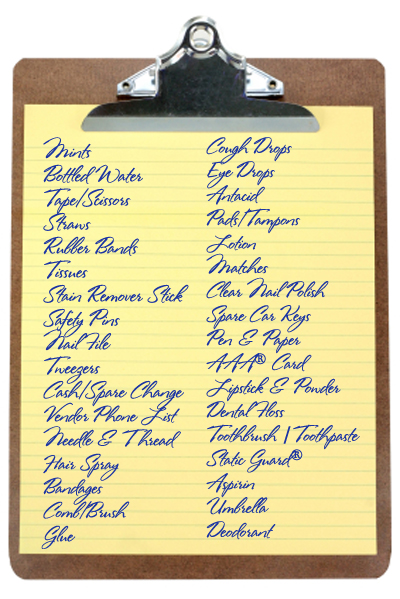 Mints
Bottled Water
Tape/Scissors
Straws
Rubber Bands
Tissues
Stain Remover Stick
Safety Pins
Nail File
Tweezers
Cash/Spare Change
Vendor Phone List
Needle & Thread
Hair Spray
Bandages
Comb/Brush
Glue
Cough Drops
Eye Drops
Antacid
Pads/Tampons
Lotion
Matches
Clear Nail Polish
Spare Car Keys
Pen & Paper
AAA® Card
Lipstick & Powder
Dental floss
Toothbrush | Toothpaste
Static Guard®
Aspirin
Umbrella
Deodorant